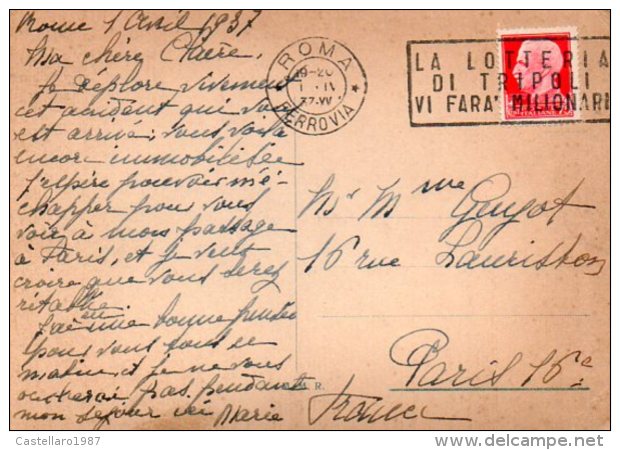 Rome 1 Avril 1937
Ma chère Claire,
Je déplore vivement
cet accident qui vous
est arrivé; vous voilà
encore immobilisée
J'espère pouvoir m'é-
chapper pour vous
voir à mon passage
à Paris, et je veux
croire que vous serez
rétablie.
J'ai eu une bonne pensée
pour vous tous ce
matin, et je ne vous
oublierai pas pendant
mon séjour ici Marie
ROMA
19-20
1 · IV
37·XV
FERROVIA
LA LOTTERIA
DI TRIPOLI
VI FARA' MILIONARI
Mr Mme Guyot
16 rue Lauriston
Paris 16e
France
R.
Castellaro1987
delcampe.net